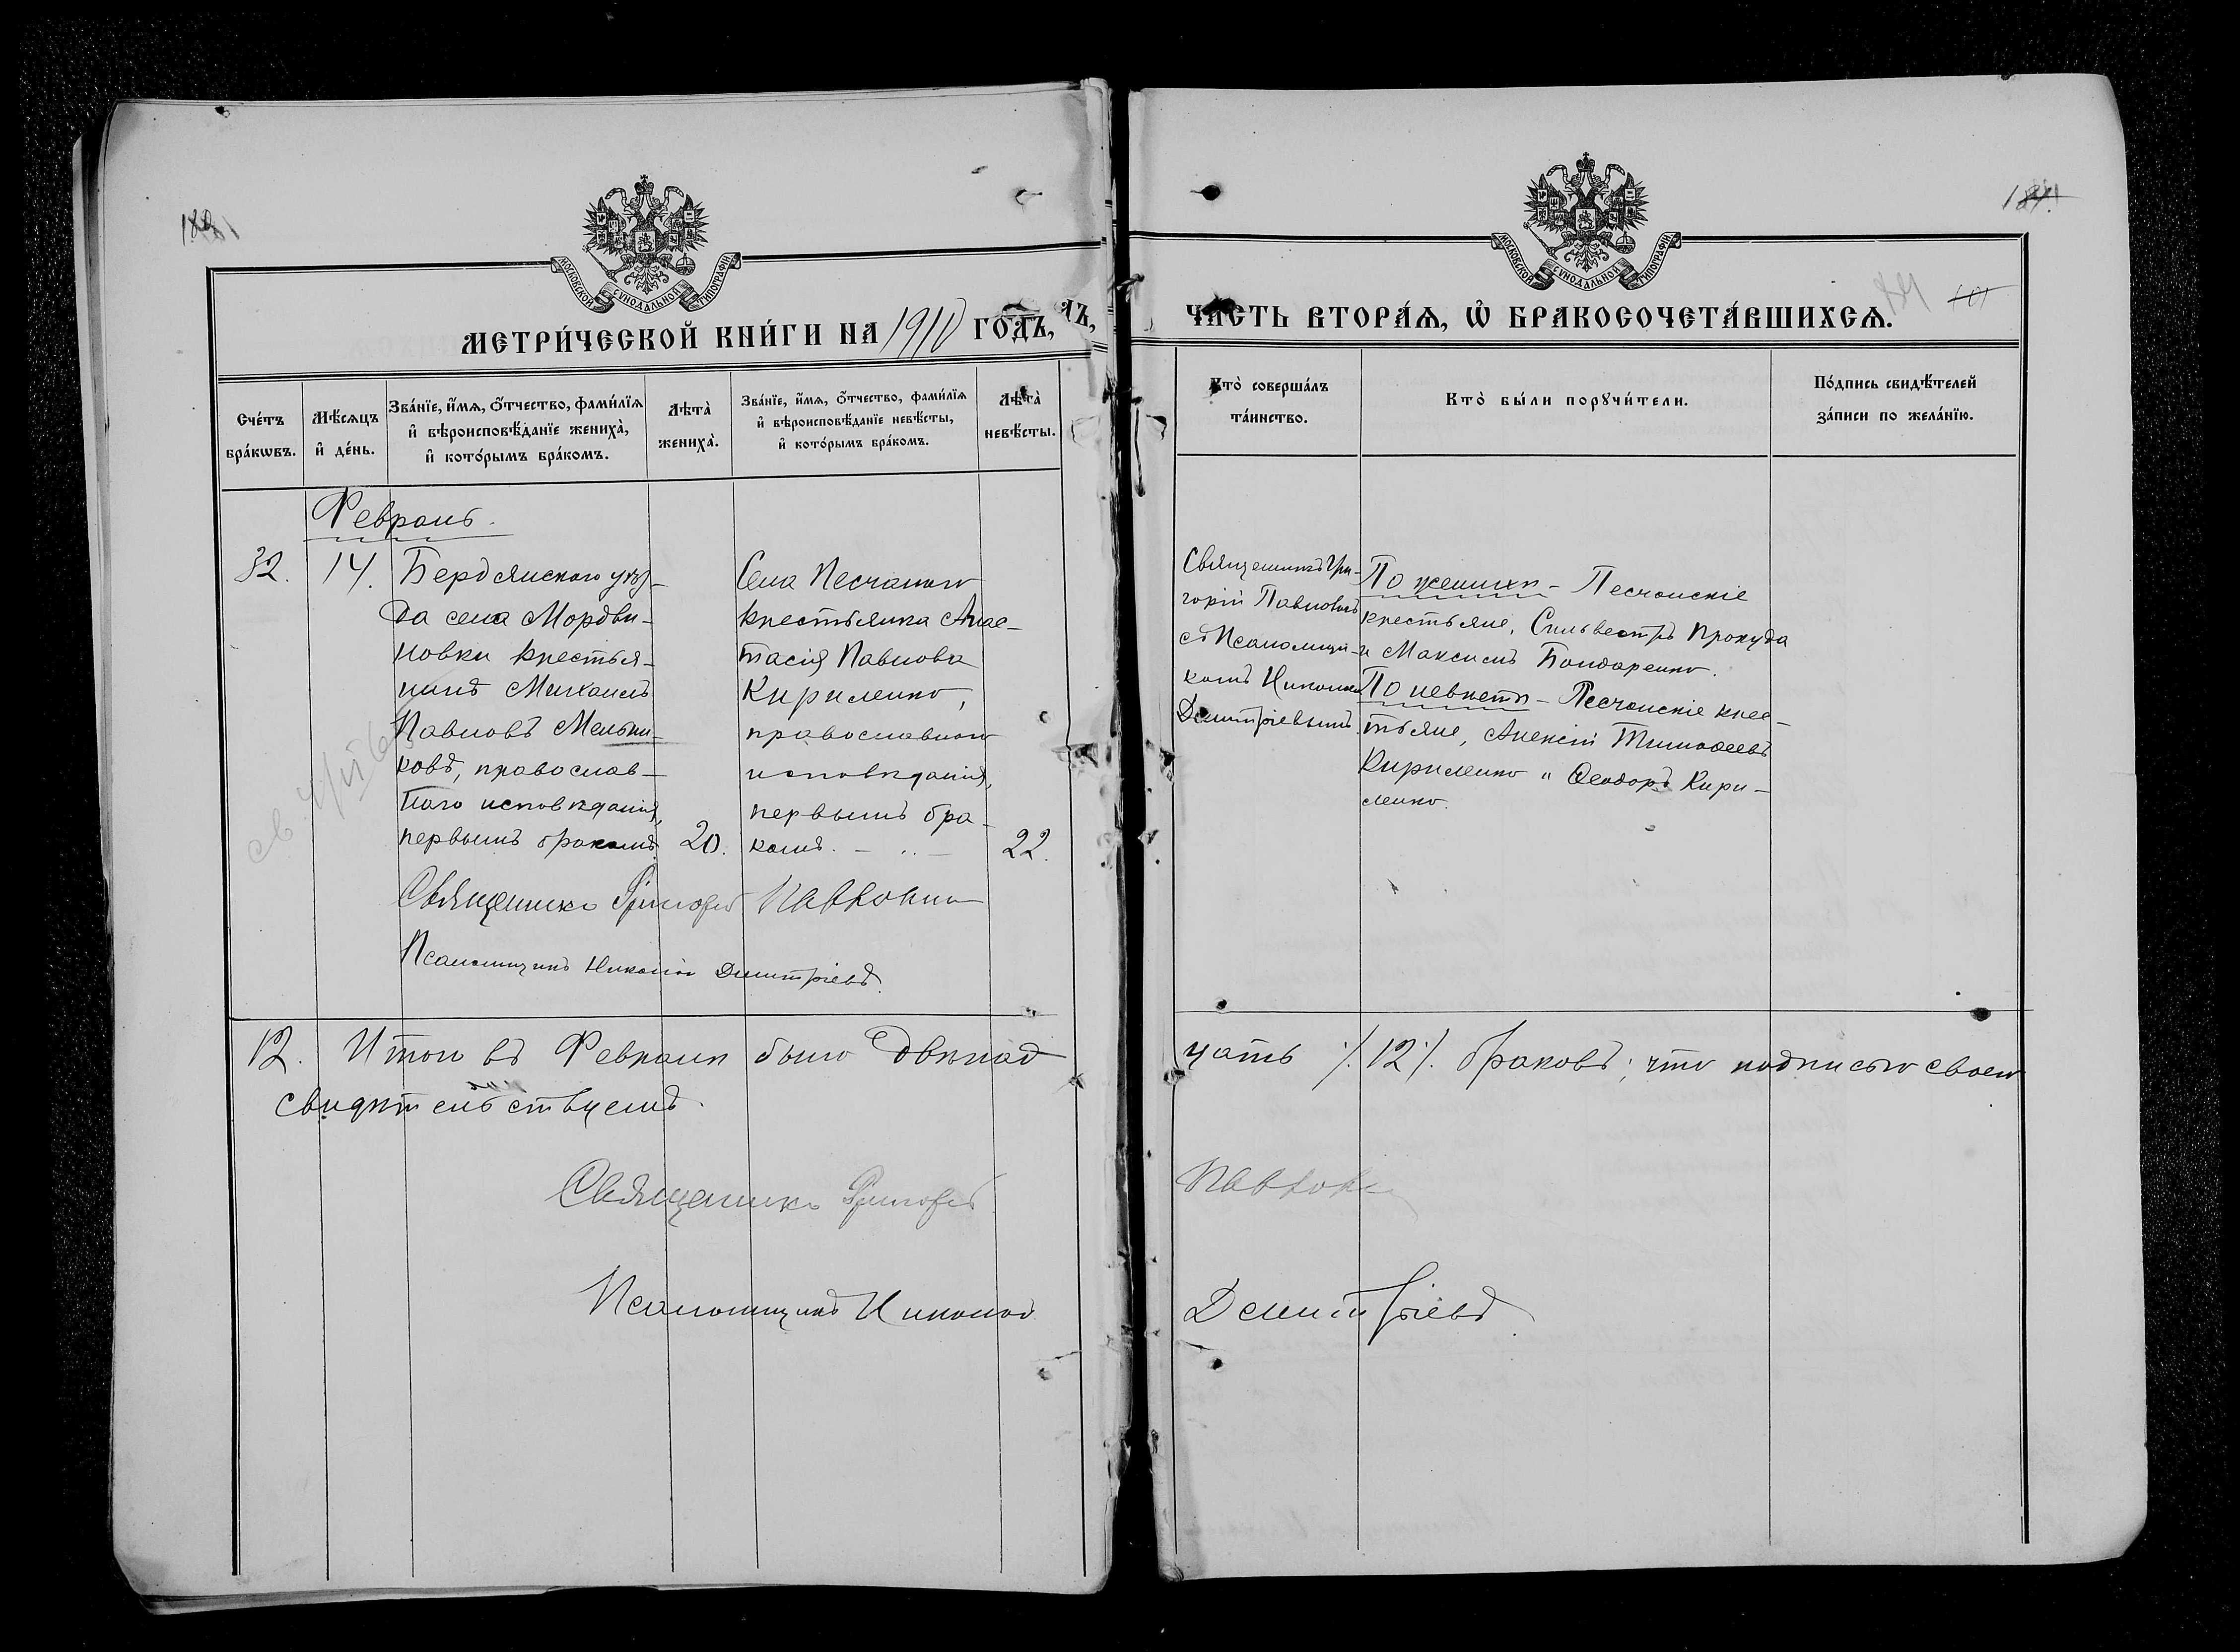 МОСКОВСКОЙ СѴНОДАЛЬНОЙ ТИПОГРАФІИ.
МЕТРИ́ЧЕСКОЙ КНИ́ГИ НА 1910 ГО́ДЪ,
Сче́тъ бра́кѡвъ.
Мѣ́сѧцъ и҆ де́нь.
Зва́нїе, и҆́мѧ, ѻ҆́тчество, фами́лїѧ
и҆ вѣроисповѣ́данїе жениха̀,
и҆ кото́рымъ бра́комъ.
Лѣта̀ жениха̀.
Зва́нїе, и҆́мѧ, ѻ҆́тчество, фами́лїѧ
и҆ вѣроисповѣ́данїе невѣ́сты,
и҆ кото́рымъ бра́комъ.
Лѣта̀ невѣ́сты.
Февраль.
32.
14.
Бердянскаго уѣз-
да села Мордви-
новки крестья-
нинъ Михаилъ
Павловъ Мельни-
ковъ, православ-
наго исповѣданія,
первымъ бракомъ.
20.
Села Песчанаго
крестьянка Анас-
тасія Павлова
Кириленко,
православнаго
исповѣданія,
первымъ бра-
комъ.
22.
Священникъ Григорій Павловскій
Псаломщикъ Николай Димитріевъ.
12. Итого въ Февралѣ было двѣнад
свидѣтельствуемъ.
Священникъ Григорій
Псаломщикъ Николай
МОСКОВСКОЙ СѴНОДАЛЬНОЙ ТИПОГРАФІИ.
ЧА́СТЬ ВТОРА́Ѧ, Ѡ҆ БРАКОСОЧЕТА́ВШИХСѦ.
101
Кто̀ соверша́лъ
та́инство.
Кто̀ бы́ли порꙋчи́тели.
По́дпись свидѣ́телей
за́писи по жела́нїю.
Священникъ Гри-
горій Павловскій
съ Псаломщи-
комъ Николаемъ
Димитріевымъ.
По женихѣ - Песчанскіе
крестьяне, Сильвестръ Прокуда
и Максимъ Бондаренко.
По невѣстѣ - Песчанскіе крес-
тьяне, Алексій Тимоѳеевъ
Кириленко и Ѳеодоръ Кири-
ленко.
цать /.12/. браковъ; что подписью своею
Димитріевъ.